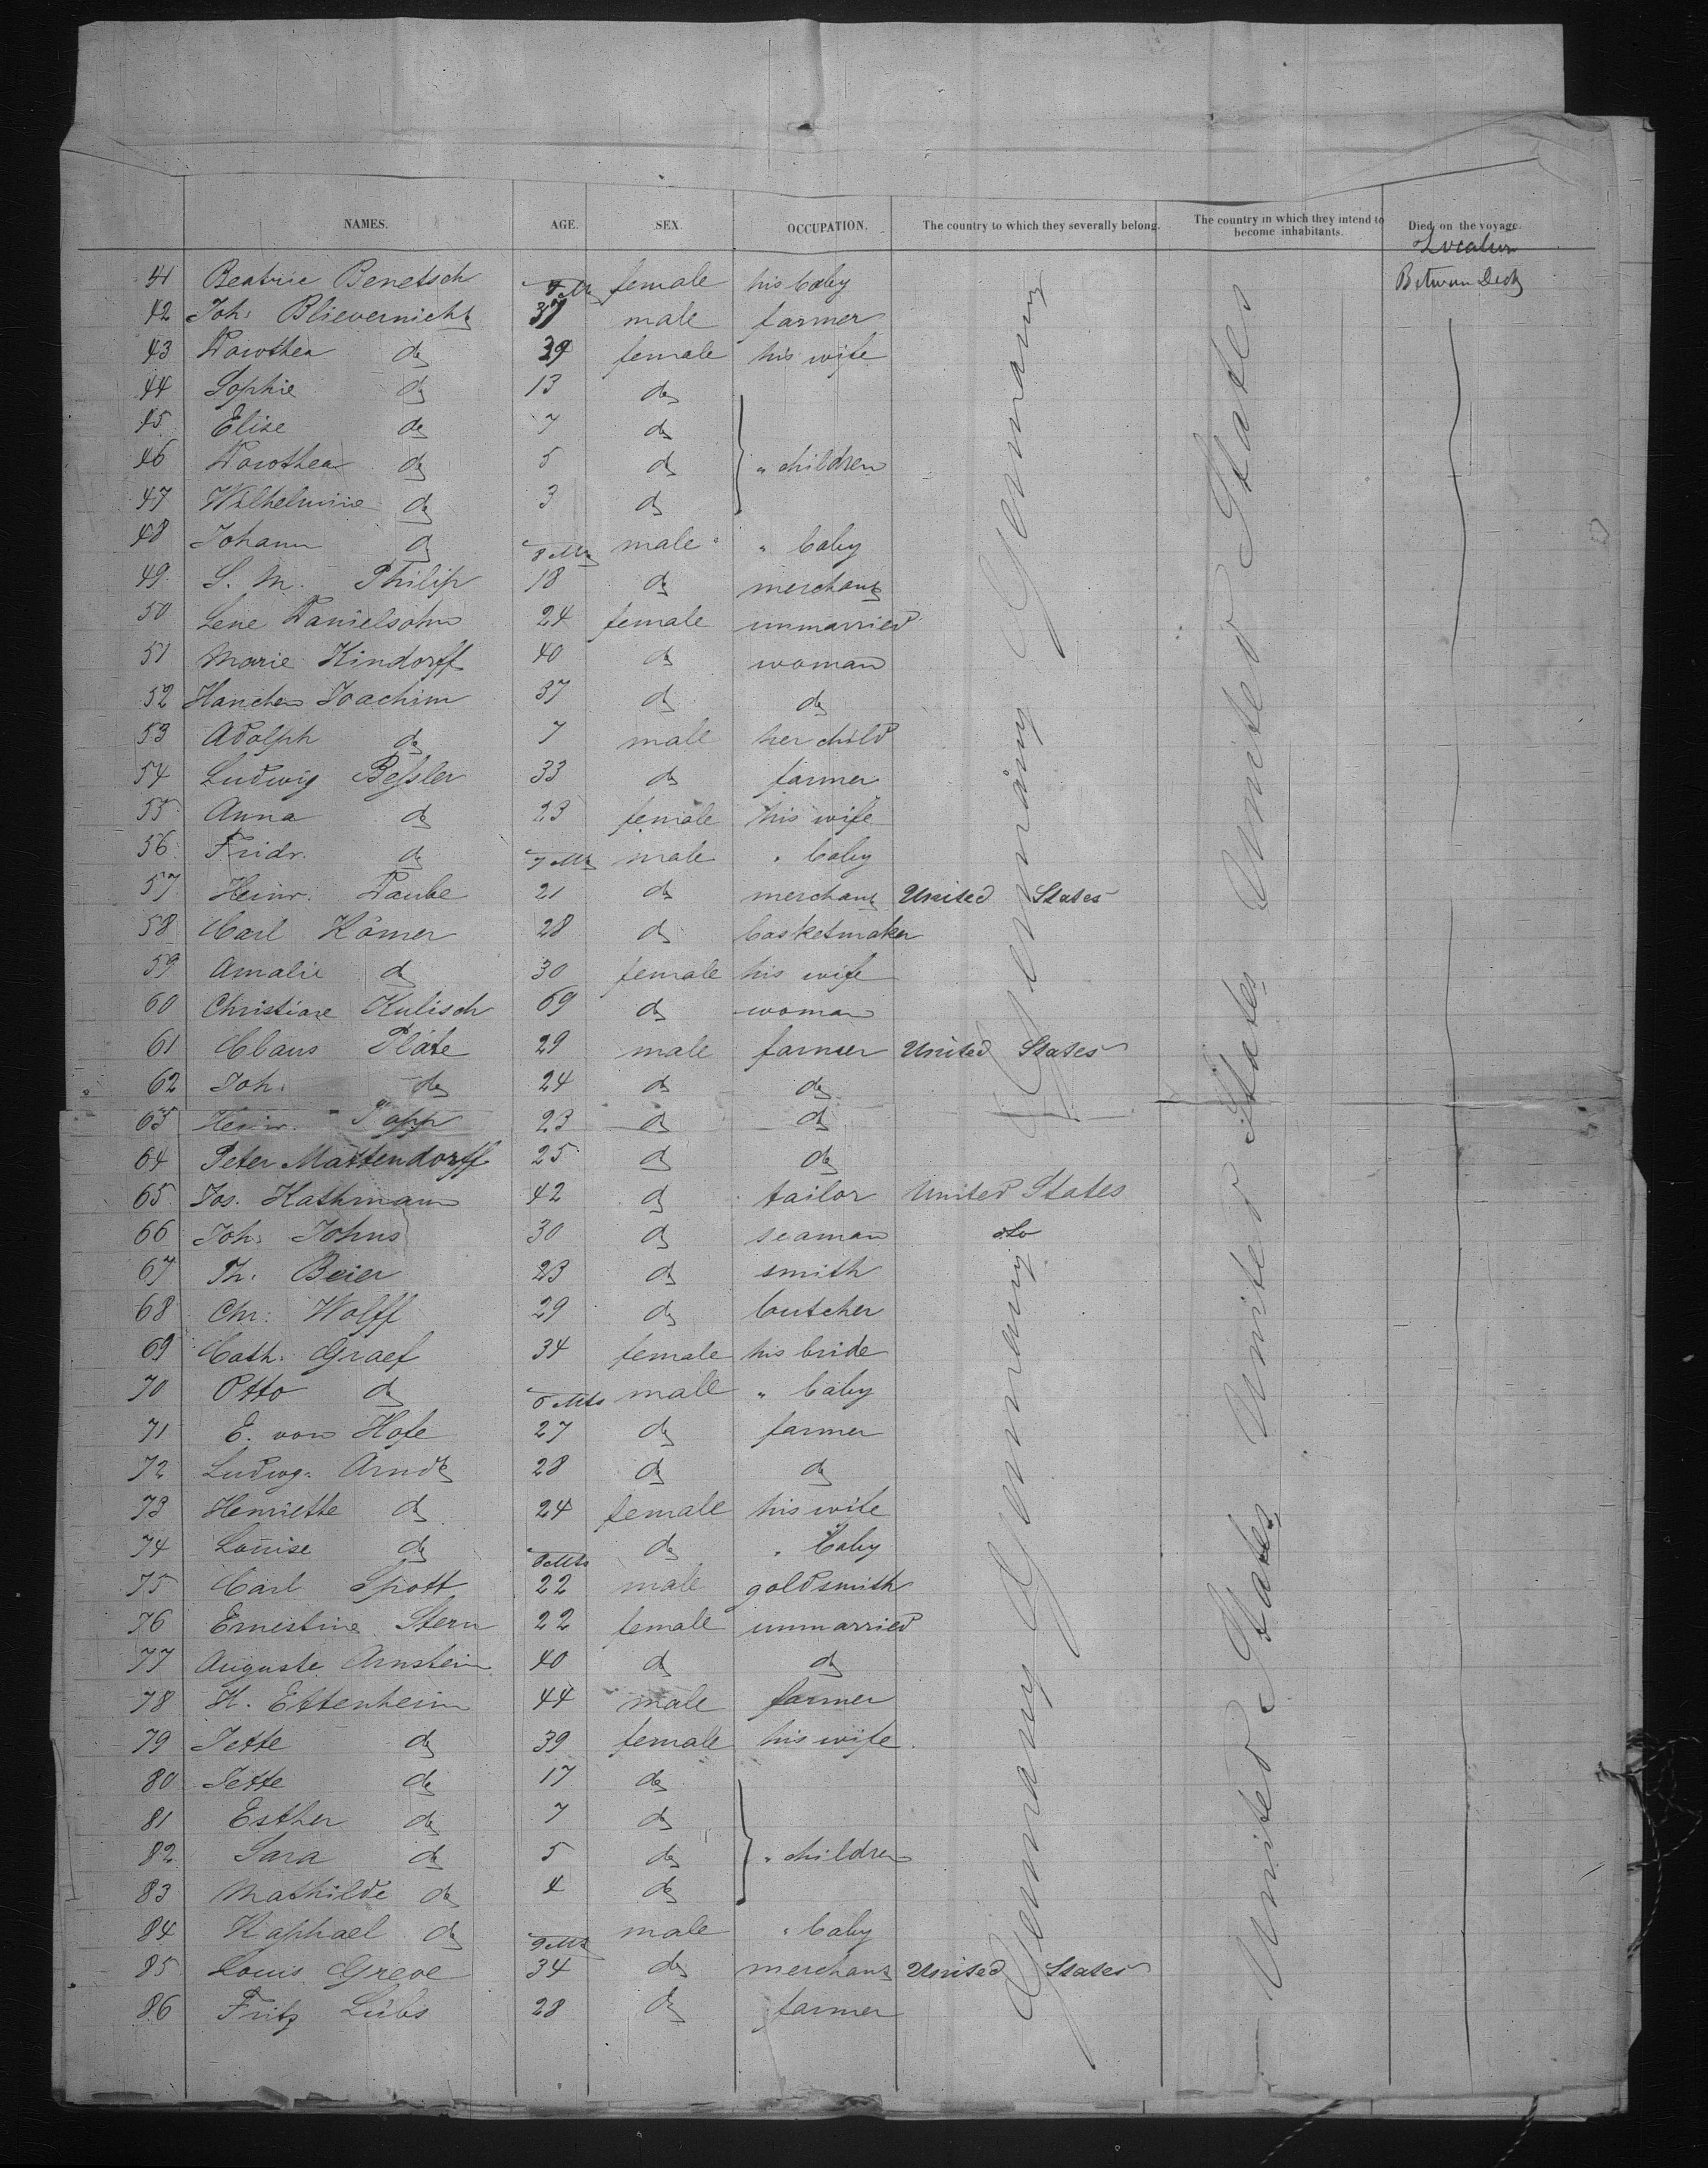 NAMES. AGE. SEX. OCCUPATION. The country to which they severally belong. The country in which they intend to become inhabitants. Died on the voyage.
Location
41 Beatrie Benetsch female his baby Between Deck
42 Joh: Blievernicht 37 male farmer
43 Dorothea do 39 female his wife
44 Sophie do 13 do
45 Elise do 7 do
46 Dorothea do 5 do " children
47 Wilhelmine do 3 do
48 Johann do 8 Mts male " baby
49 S. M. Philip 18 do merchant
50 Lene Danielsohn 24 female unmarried
51 Marie Kindorff 40 do woman
52 Hanchen Joachim 37 do do
53 Adolph do 7 male her child
54 Ludwig Beßler 33 do farmer
55 Anna do 23 female his wife
56 Fridr. do 7 Mts male " baby
57 Heinr. Daube 21 do merchant United States
58 Carl Kömer 28 do basketmaker
59 Amalie do 30 female his wife
60 Christiane Kulisch 69 do woman
61 Claus Plate 29 male farmer United States
62 Joh. do 24 do do
63 Heinr. Popp 23 do do
64 Peter Mattendorff 25 do do
65 Jos. Kathmann 42 do tailor United States
66 Joh: Johns 30 do seaman do
67 Th: Beier 23 do smith
68 Chr: Wolff 29 do butcher
69 Cath: Graef 34 female his bride
70 Otto do 6 Mts male " baby
71 E. von Hofe 27 do farmer
72 Ludwg: Arndt 28 do do
73 Henriette do 24 female his wife
74 Louise do 8 Mts do " baby
75 Carl Spott 22 male goldsmith
76 Ernestine Stern 22 female unmarried
77 Auguste Arnstein 40 do do
78 H. Ettenheim 44 male farmer
79 Jette do 39 female his wife
80 Jette do 17 do
81 Esther do 7 do
82 Sara do 5 do " children
83 Mathilde do 4 do
84 Raphael do 9 Mts male " baby
85 Louis Greve 34 do merchant United States
86 Fritz Lübs 28 do farmer
Germany Germany Germany Germany
United States United States United States